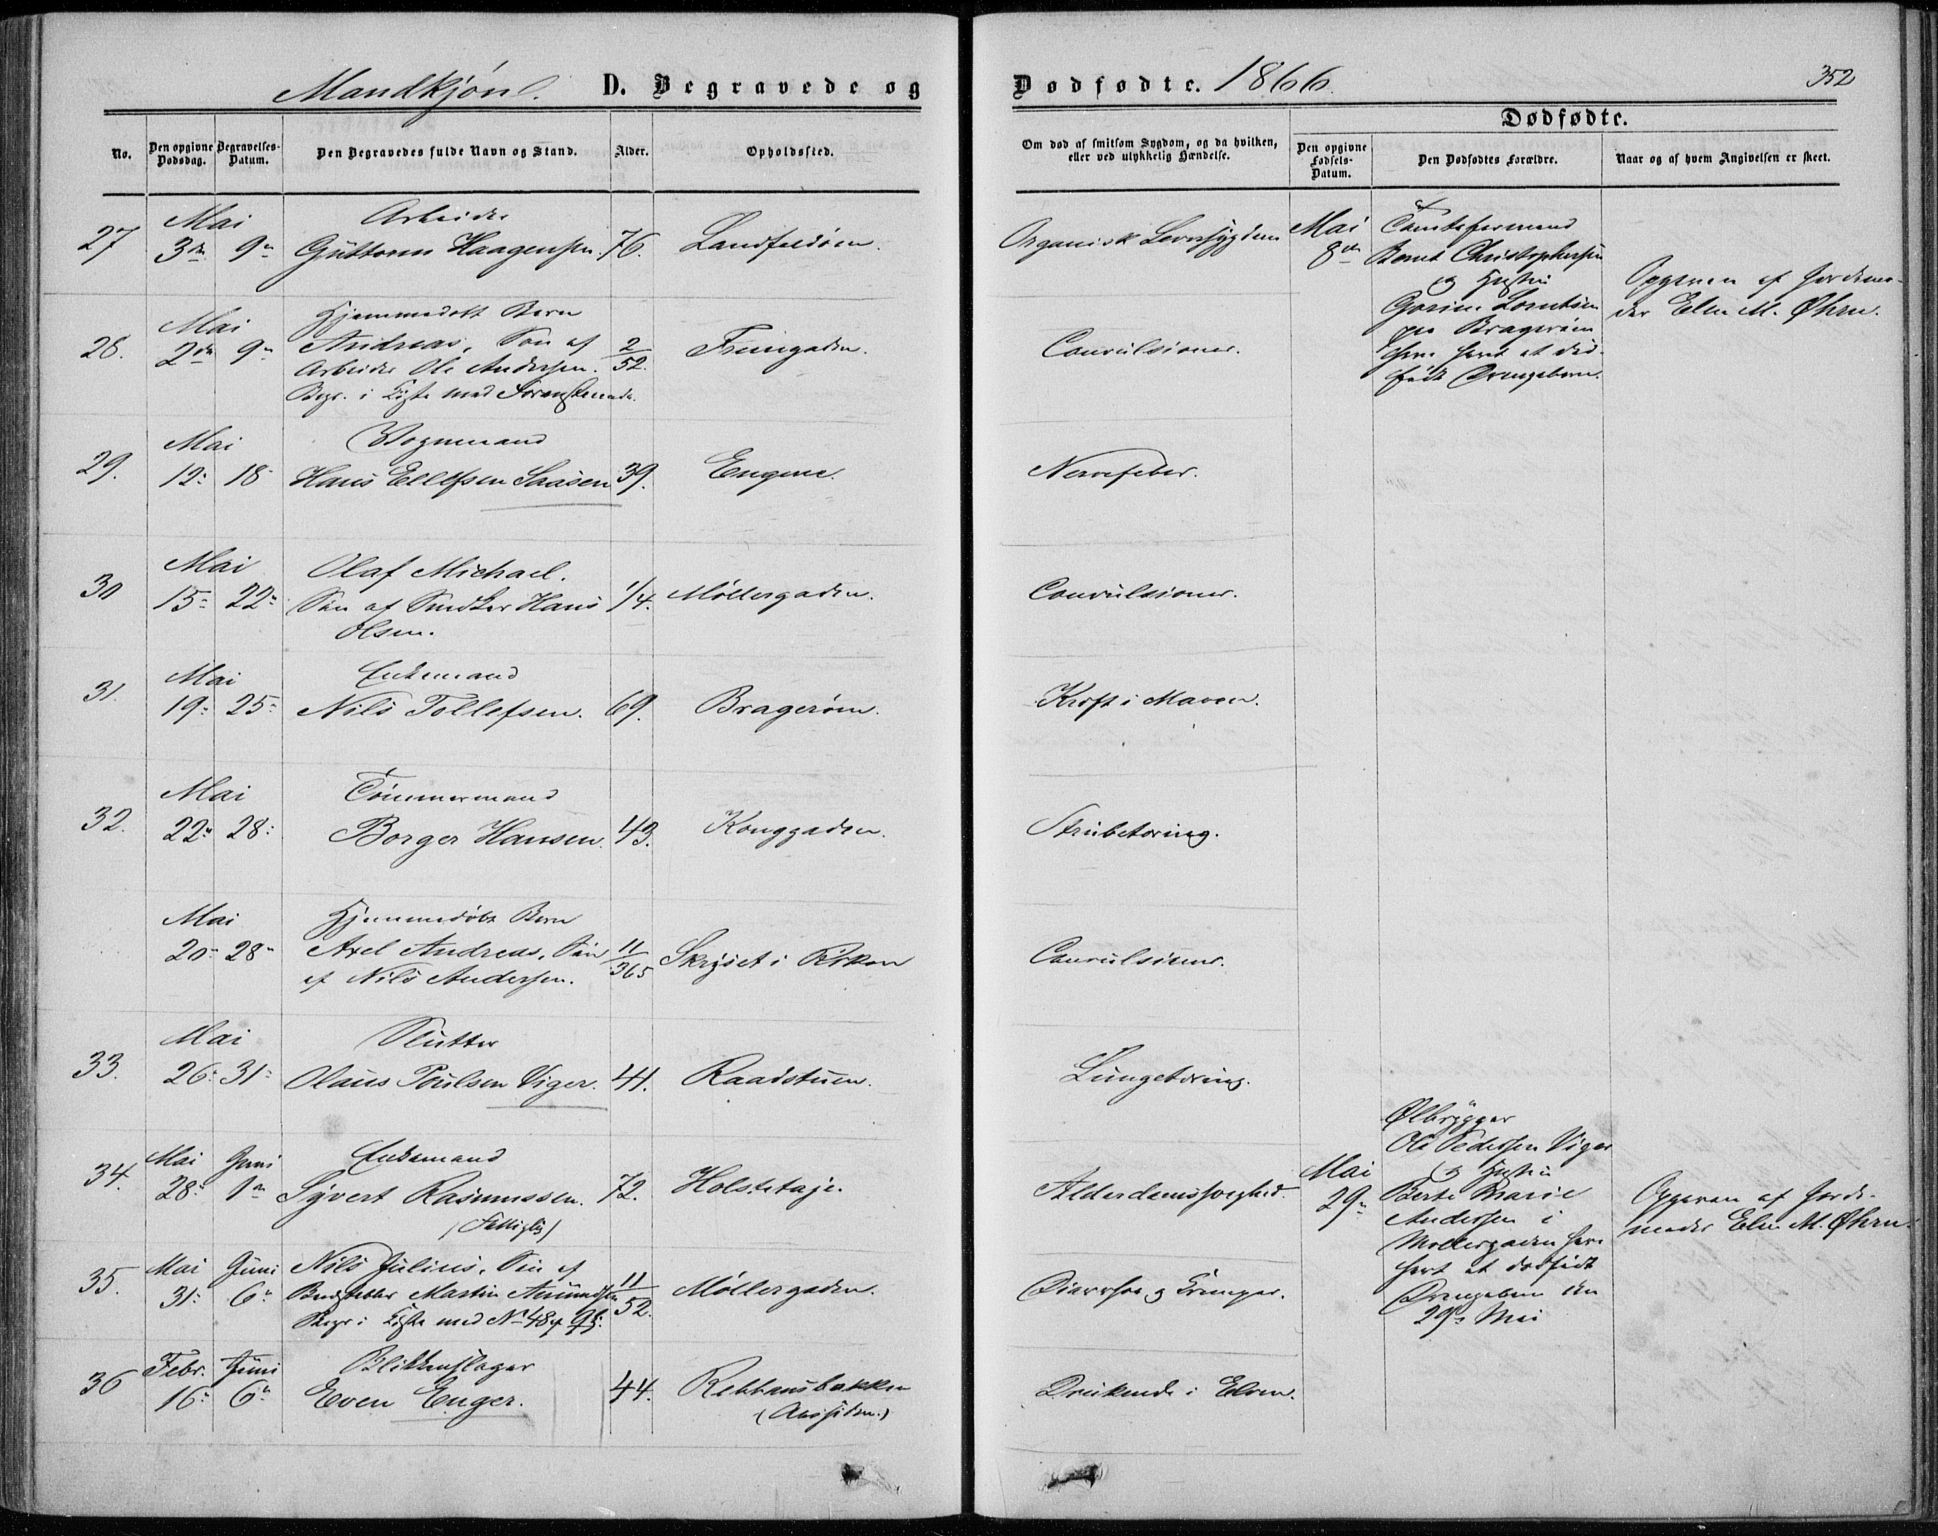 Mandkjøn. D. Begravede og
Dødfødte. 1866.
352
No.
Den opgivne Dødsdag.
Begravelses-Datum.
Den Begravedes fulde Navn og Stand.
Alder.
Opholdssted.
Om død af smitsom Sygdom, og da hvilken, eller ved ulykkelig Hændelse.
Dødfødte.
Den opgivne Fødsels-Datum.
Den Dødfødtes Forældre.
Naar og af hvem Angivelsen er skeet.
Mai Arbeider
27 3die 9de Guttorm Haagensen. 76. Landfaldøen. Organisk Leversygdom
Mai 8de
Tomteformand
Bernt Christophersen
og Hustru
Gorine Lorntsen
paa Bragerøen
have havt et død-
født Drengebarn.
Opgiven af Jordemo-
der Elen M. Øhrn.
Mai Hjemmedøbt Barn
28. 2den 9de Andreas, Søn af 2/52. Convulsioner.
Arbeider Ole Andersen.
Begr. i Kiste med
Mai Vognmand
29. 12te 18 Hans Ellefsen Saasen 39. Engene. Nervefeber.
Mai Olaf Michael.
30 15de 22de Søn af Hans 1/4. Møllergaden. Convulsioner.
Olsen.
Mai Enkemand
31. 19de 25de Nils Tollefsen. 69. Bragerøen. Kræft i Maven.
Mai Tømmermand
32. 22de 28de Borger Hansen. 43. Konggaden. Strubetæring.
Mai Hjemmedøbt Barn
20de 28de Axel Andreas, Søn 11/365 i Røken Convulsioner.
af Nils Andersen.
Mai Slutter
33. 26de 31te Olaus Poulsen Viger. 41. Raadstuen. Lungetæring.
Mai Juni Enkemand
34. 28de 1ste Syvert Rasmussen. 72. Alderdomssvaghed.
(Fattiglig)
Mai
29de
Ølbrygger
Ole Pedersen Viger
og Hustru
Berte Marie
Andersen i
Møllergaden have
havt et dødfødt
Drengebarn den
29de Mai
Opgiven af Jorde-
moder Elen M. Øhrn.
Mai Juni Nils Julius, Søn af
35. 31te 6te Martin Amundsen 11/52. Møllergaden. Diarrhoe og Kramper.
Begr. i Kiste med No 48
Febr. Juni Blikkenslager
36 16de 6te Even Enger. 44. Rebbansbakken Druknede i Elven.